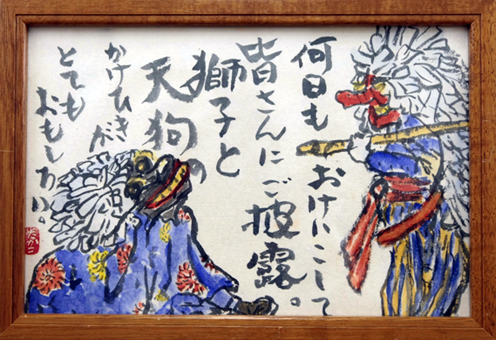 何日もおけいこして
皆さんにご披露。
獅子と
天狗の
かけひきが
とても
おもしろい。